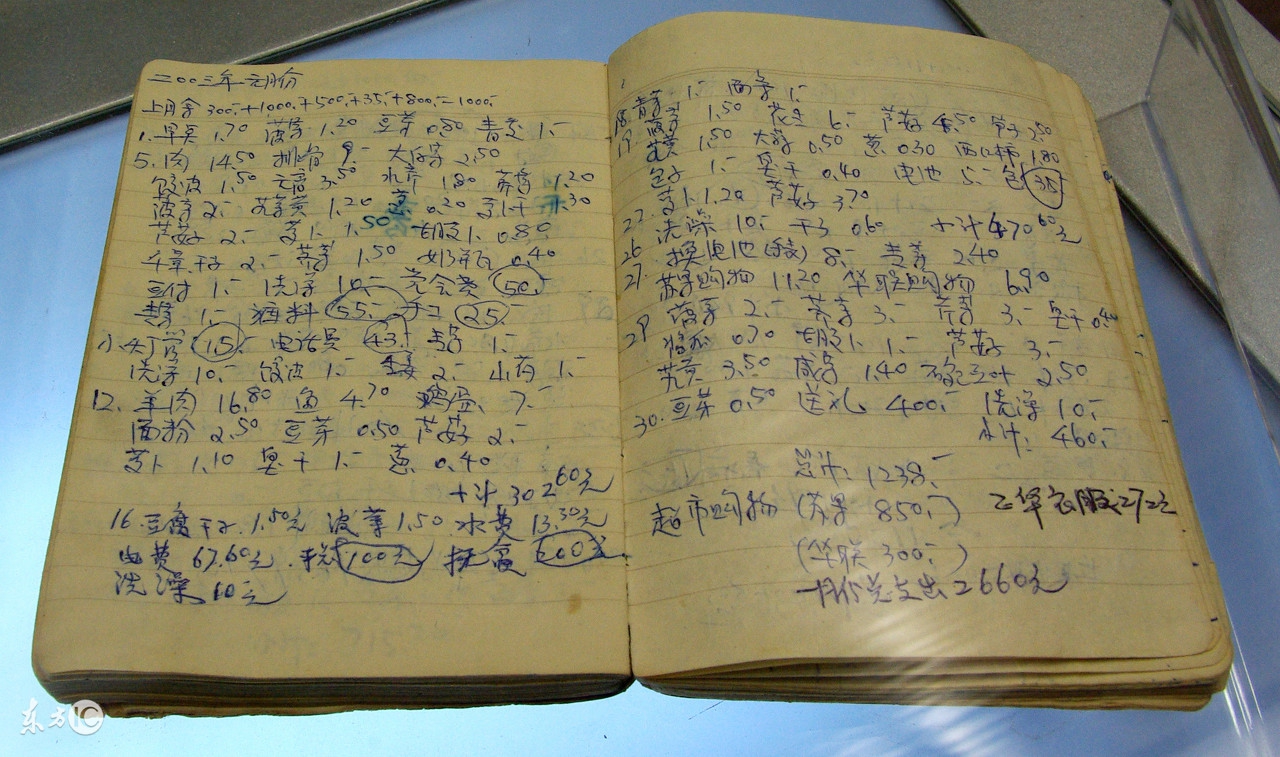 二〇〇三年元月份
上月余 300.-+1000.+500.+35.+800.=1000.-
1.早点 1.70 菠菜 1.20 豆芽 0.80 青菜 1.-
5.肉 14.50 排骨 9.- 大白菜 2.50
饺皮 1.50 元宵 3.50 水芹 1.80 荠菜 1.20
菠菜 2.- 1.20 葱 0.20 1.30
芦蒿 2.- 萝卜 1.50 0.80
干子 2.- 荠菜 1.50 0.40
豆付 1.- 洗澡 10.- 50.
1.- 55.- 25.
15. 电话费 43. 1.-
洗澡 10.- 饺皮 1.- 2.- 山药 1.-
12.羊肉 16.80 鱼 4.70 鸡蛋 7.-
面粉 2.50 豆芽 0.50 芦蒿 2.-
萝卜 1.10 臭干 1.- 葱 0.40
小计 302.60元
16.豆腐干子 1.50元 菠菜 1.50 水费 13.30元
电费 67.60元 100元 600元
洗澡 10元
18.青菜 1.- 面条 1.-
19.菠菜 1.50 花生 6.- 芦蒿 4.50 2.50
1.50 大蒜 0.50 葱 0.30 西红柿 1.80
包子 1.- 臭干 0.40 电池 5.- 35
22.萝卜 1.20 芦蒿 3.70
洗澡 10.- 干子 0.60 小计 470.60元
26.换电池(表) 8.- 青菜 2.40
27.苏果购物 11.20 华联购物 6.90
29.菠菜 2.- 芹菜 3.- 荠菜 3.- 臭干 0.40
0.70 1.- 芦蒿 3.-
3.50 咸菜 1.40 2.50
30.豆芽 0.50 送礼 400.- 洗澡 10.-
小计: 460.-
总计: 1238.-
超市购物 (苏果 850.-) 衣服272元
(华联 300.-)
一月份总支出2660元
东方IC